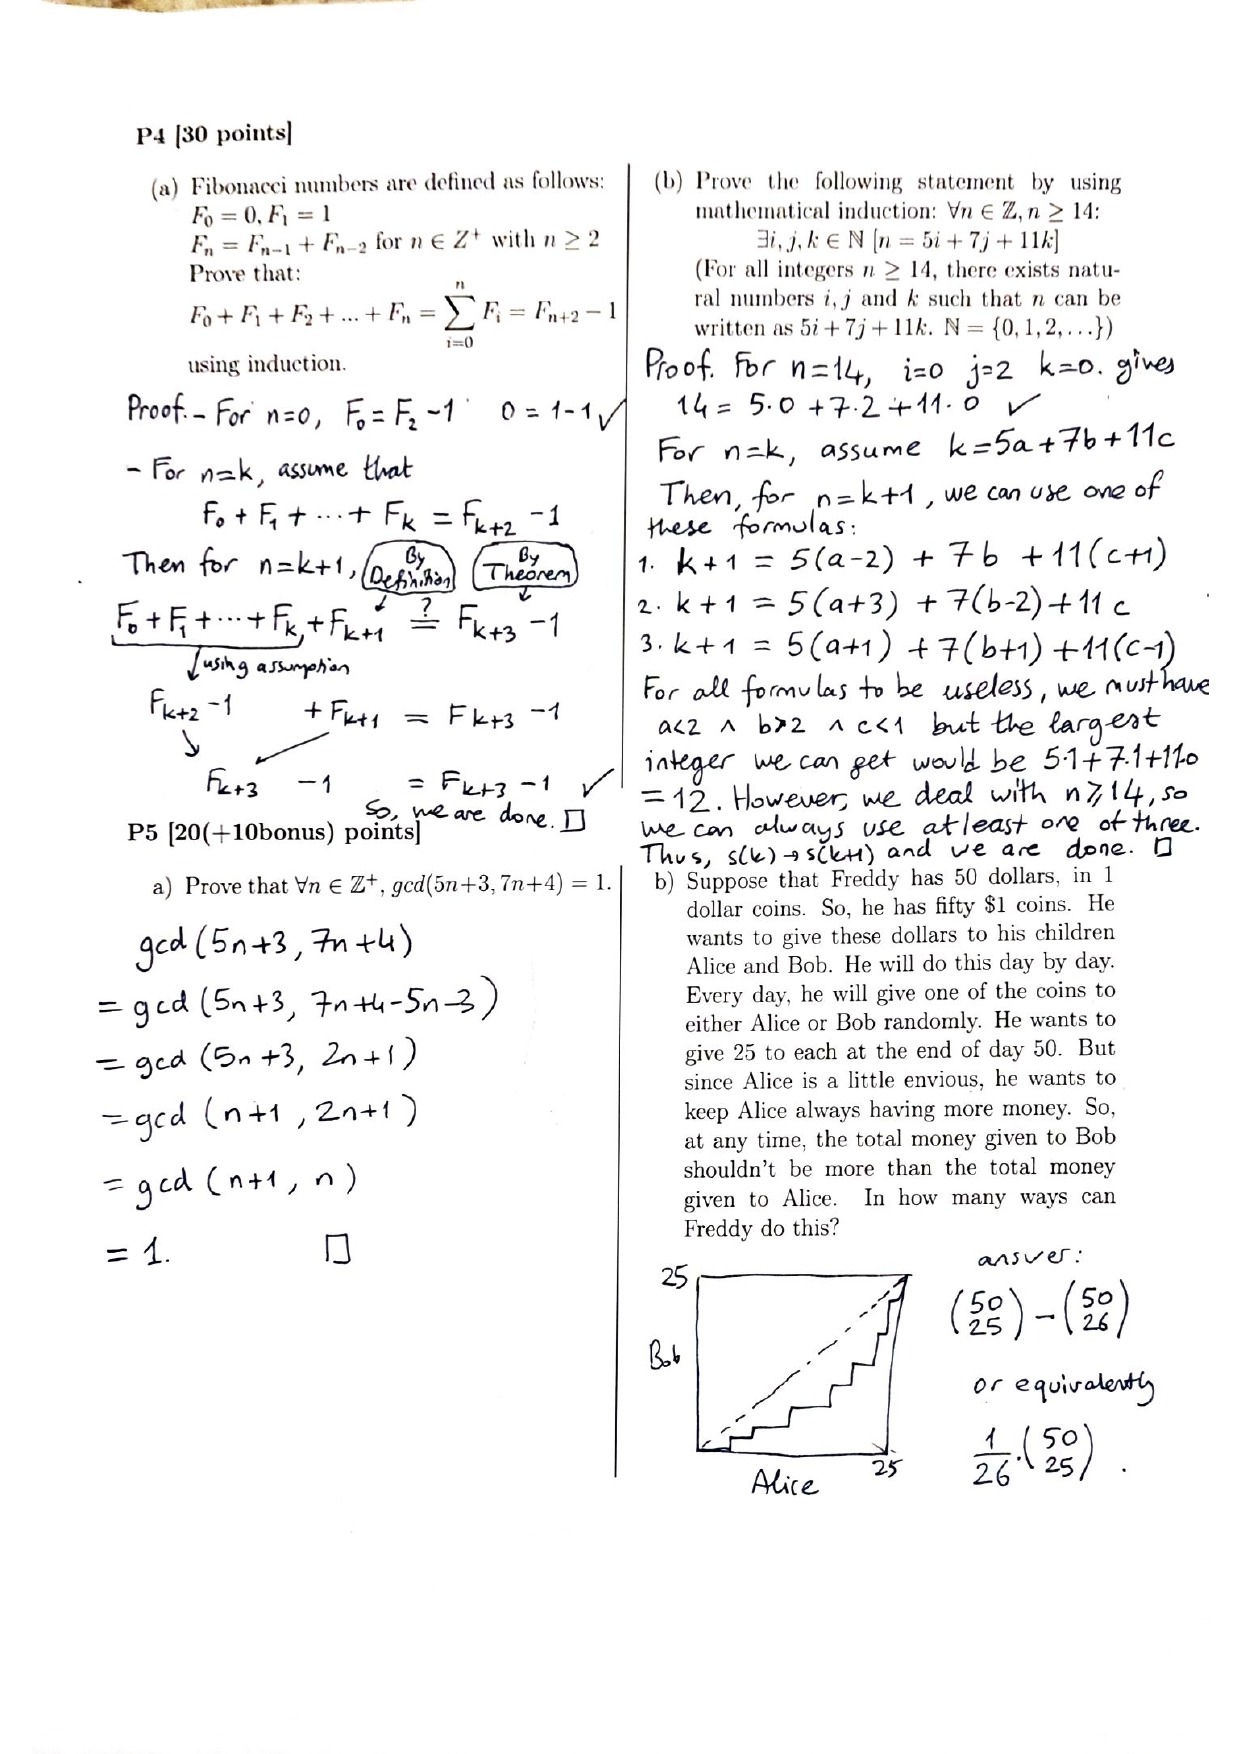 P4 [30 points]
(a) Fibonacci numbers are defined as follows:
F₀ = 0, F₁ = 1
Fₙ = Fₙ₋₁ + Fₙ₋₂ for n ∈ Z⁺ with n ≥ 2
Prove that:
F₀ + F₁ + F₂ + ... + Fₙ = ∑ᵢ₌₀ⁿ Fᵢ = Fₙ₊₂ − 1
using induction.
Proof. - For n=0, F₀ = F₂ - 1 0 = 1-1 ✓
- For n=k, assume that
F₀ + F₁ + ... + Fₖ = Fₖ₊₂ - 1
Then for n=k+1, By Definition By Theorem
F₀ + F₁ + ... + Fₖ + Fₖ₊₁ ≟ Fₖ₊₃ - 1
using assumption
Fₖ₊₂ - 1 + Fₖ₊₁ = Fₖ₊₃ - 1
Fₖ₊₃ - 1 = Fₖ₊₃ - 1 ✓
So, we are done. □
(b) Prove the following statement by using
mathematical induction: ∀n ∈ ℤ, n ≥ 14:
∃i, j, k ∈ ℕ [n = 5i + 7j + 11k]
(For all integers n ≥ 14, there exists natu-
ral numbers i, j and k such that n can be
written as 5i + 7j + 11k. ℕ = {0, 1, 2, . . .})
Proof. For n=14, i=0 j=2 k=0. gives
14 = 5·0 + 7·2 + 11·0 ✓
For n=k, assume k=5a+7b+11c
Then, for n=k+1, we can use one of
these formulas:
1. k+1 = 5(a-2) + 7b + 11(c+1)
2. k+1 = 5(a+3) + 7(b-2) + 11c
3. k+1 = 5(a+1) + 7(b+1) + 11(c-1)
For all formulas to be useless, we must have
a<2 ∧ b>2 ∧ c<1 but the largest
integer we can get would be 5·1+7·1+11·0
= 12. However, we deal with n ≥ 14, so
we can always use at least one of three.
Thus, s(k) → s(k+1) and we are done. □
P5 [20(+10bonus) points]
a) Prove that ∀n ∈ ℤ⁺, gcd(5n+3, 7n+4) = 1.
gcd (5n+3, 7n+4)
= gcd (5n+3, 7n+4-5n-3)
= gcd (5n+3, 2n+1)
= gcd (n+1, 2n+1)
= gcd (n+1, n)
= 1. □
b) Suppose that Freddy has 50 dollars, in 1
dollar coins. So, he has fifty $1 coins. He
wants to give these dollars to his children
Alice and Bob. He will do this day by day.
Every day, he will give one of the coins to
either Alice or Bob randomly. He wants to
give 25 to each at the end of day 50. But
since Alice is a little envious, he wants to
keep Alice always having more money. So,
at any time, the total money given to Bob
shouldn't be more than the total money
given to Alice. In how many ways can
Freddy do this?
25
Bob
Alice
25
answer:
(50 25) - (50 26)
or equivalently
1/26 · (50 25).